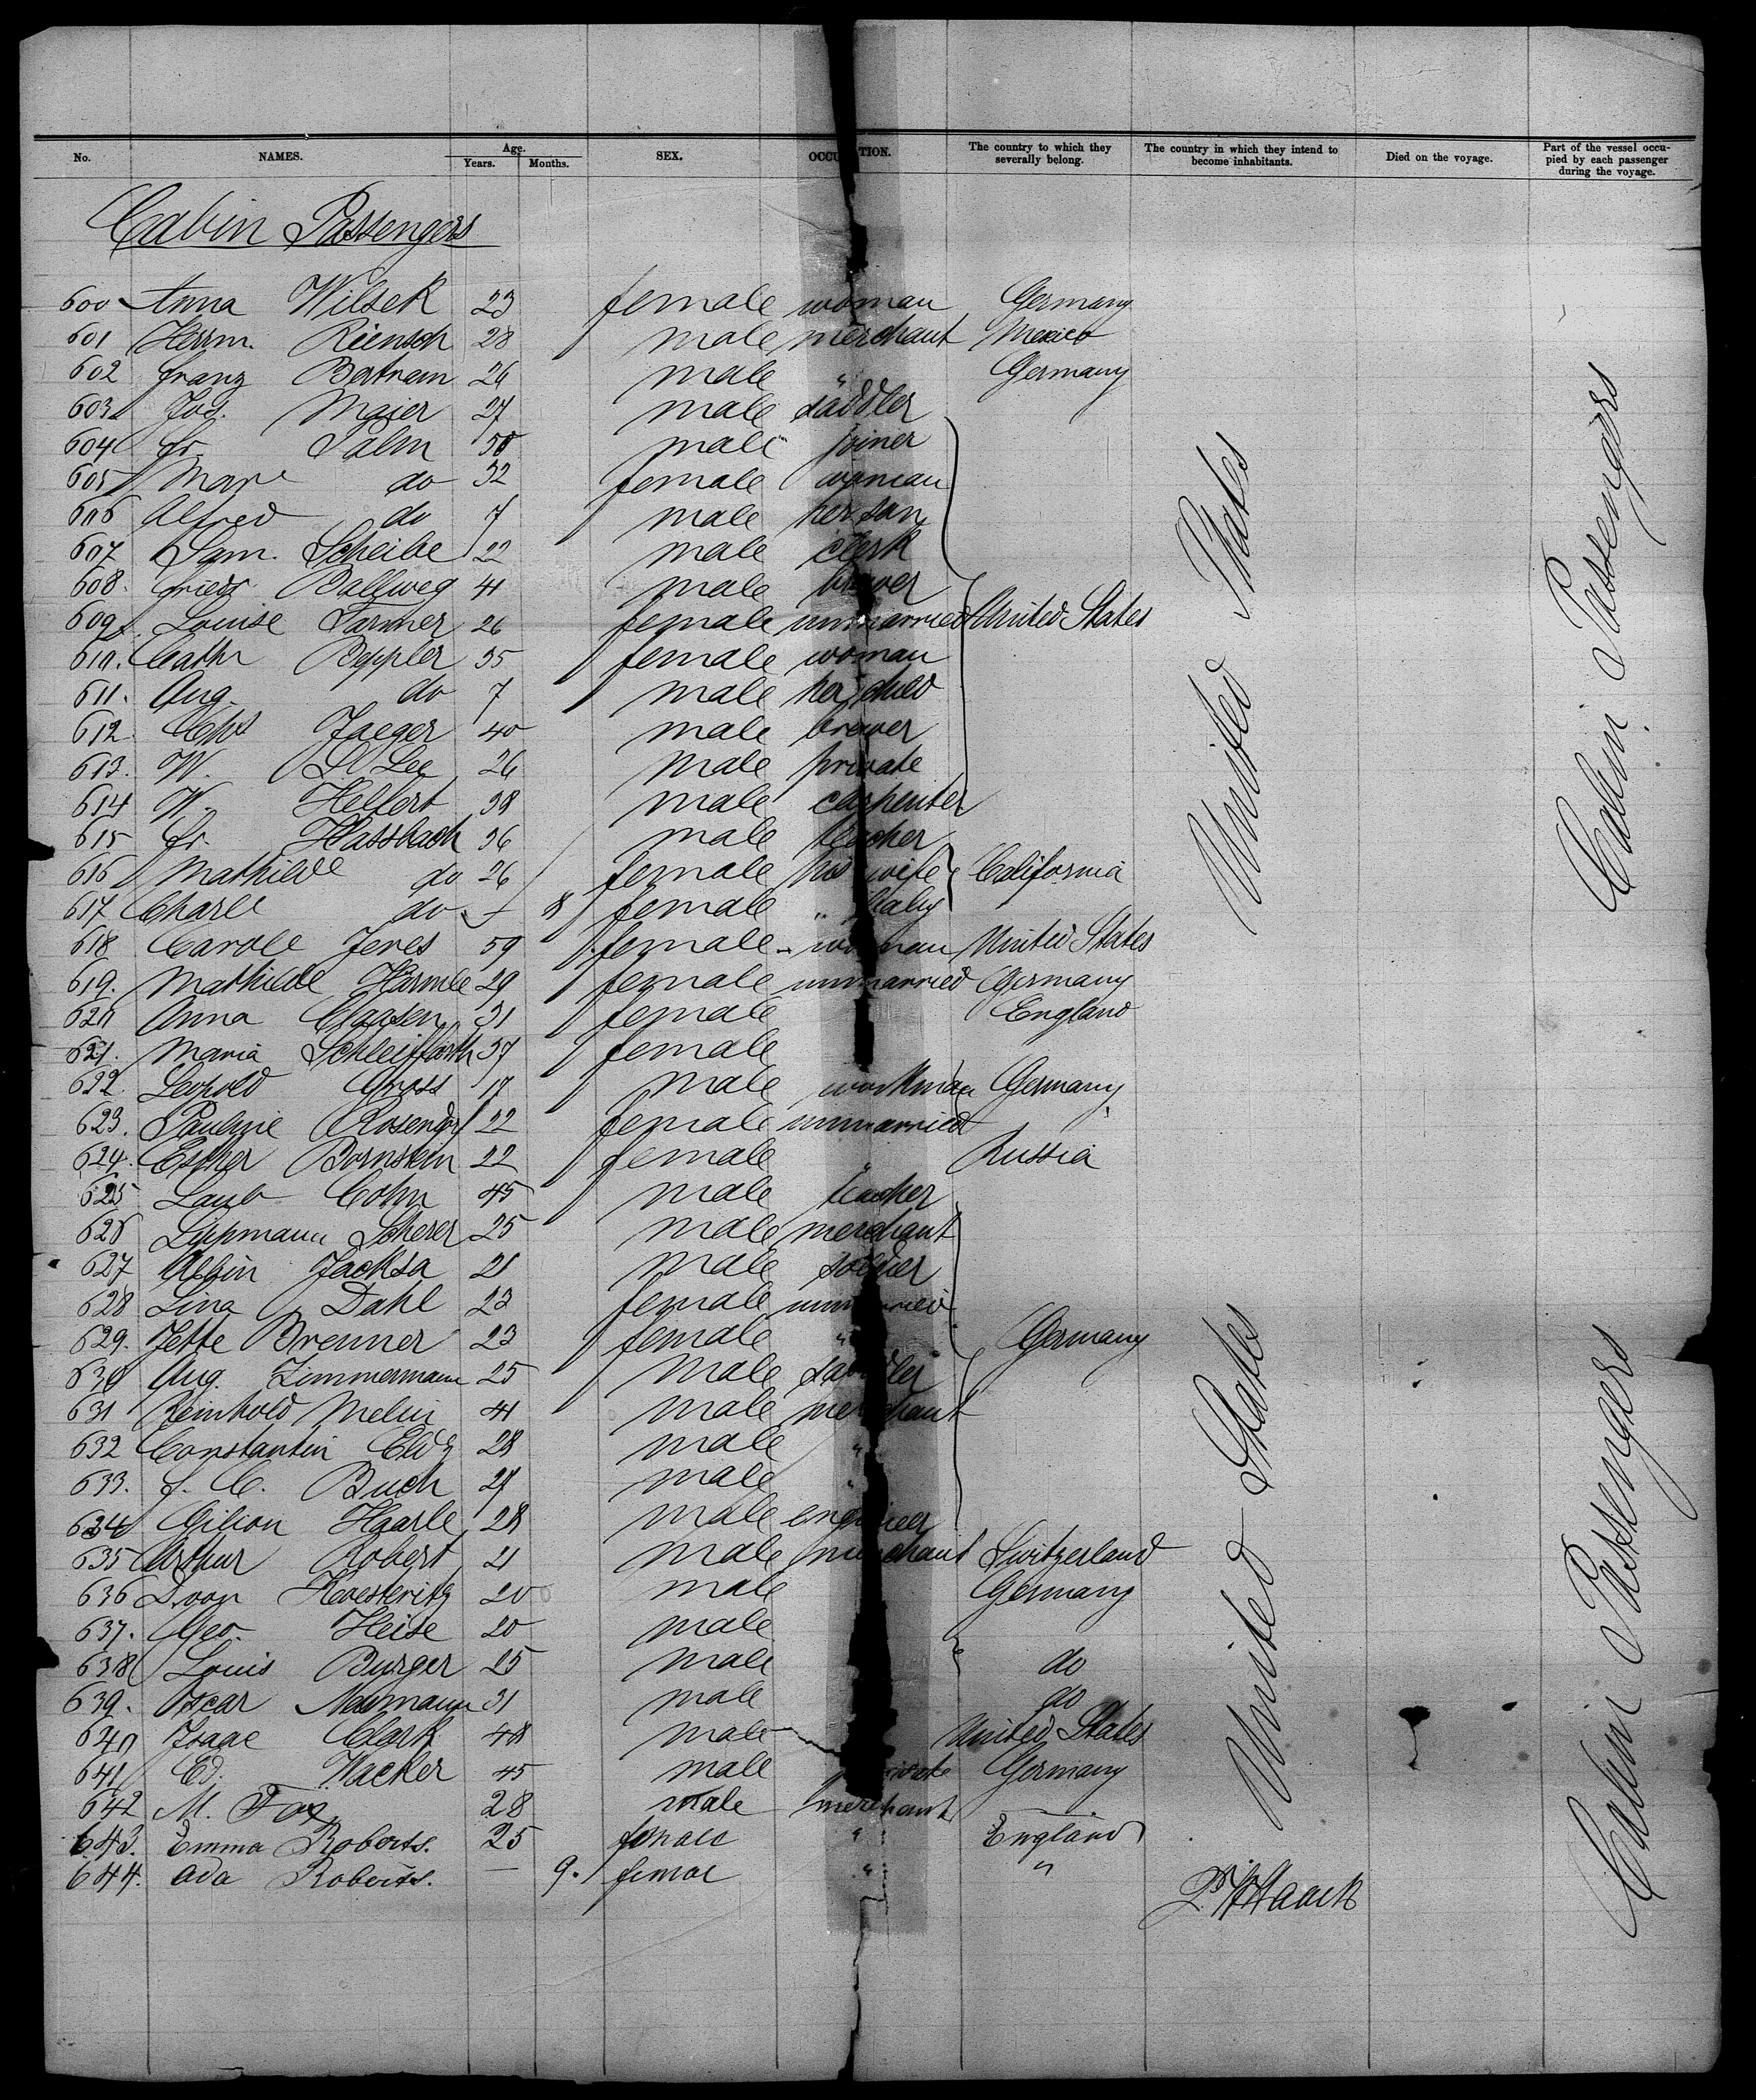 No. NAMES. Age. Years. Months. SEX. OCCU TION. The country to which they severally belong. The country in which they intend to become inhabitants. Died on the voyage. Part of the vessel occupied by each passenger during the voyage.
Cabin Passengers
600 Anna Wilsek 23 female woman Germany
601 Herrm. Riensch 28 male merchant Mexico
602 Franz Bertram 26 male " Germany
603 Jos. Maier 27 male saddler
604 Fr. Palm 50 male joiner
605 Marie do 32 female woman
606 Alfred do 7 male her son
607 Sam. Scheibe 22 male clerk
608. Friedr. Ballweg 41 male brewer
609. Louise Farmer 26 female unmarried United States
610. Cath Beppler 35 female woman
611. Aug. do 7 male her child
612. Chs Jaeger 40 male brewer
613. W. D Lee 26 male private
614 W. Hellert 38 male carpenter
615 Fr. Hassbach 36 male teacher
616 Mathilde do 26 female his wife California
617 Charl do - 8 female " baby
618 Carole Jeres 59 female woman United States
619. Mathilde Härmle 29 female unmarried Germany
620 Anna Claasen 31 female England
621. Maria Schleiffarth 37 female
622. Leopold Gross 17 male workman Germany
623. Pauline Rosendorf 22 female unmarried
624. Esther Bornstein 22 female " Russia
625 Laub Cohn 45 male teacher
626 Lippmann Scherer 25 male merchant
627 Albin Jacksa 21 male soldier
628 Lina Dahl 23 female unmarried
629. Jette Brenner 23 female " Germany
630 Aug. Zimmermann 25 male saddler
631 Reinhold Melin 41 male merchant
632 Constantin 28 male "
633. F. C. Buch 27 male "
634 Haarle 28 male engineer
635 Arthur Robert 21 male merchant Switzerland
636 D. von Koesteritz 20 male Germany
637. Geo. Heise 20 male
638 Louis Burger 25 male do
639. Oscar Naumann 31 male do
640 Isaac Clark 48 male United States
641 Ed. Wacker 45 male private Germany
642 M. Fox 28 male merchant
643. Emma Roberts. 25 female " England
644. Ada Roberts. — 9. femal " "
United States
United States
Cabin Passengers
Cabin Passengers